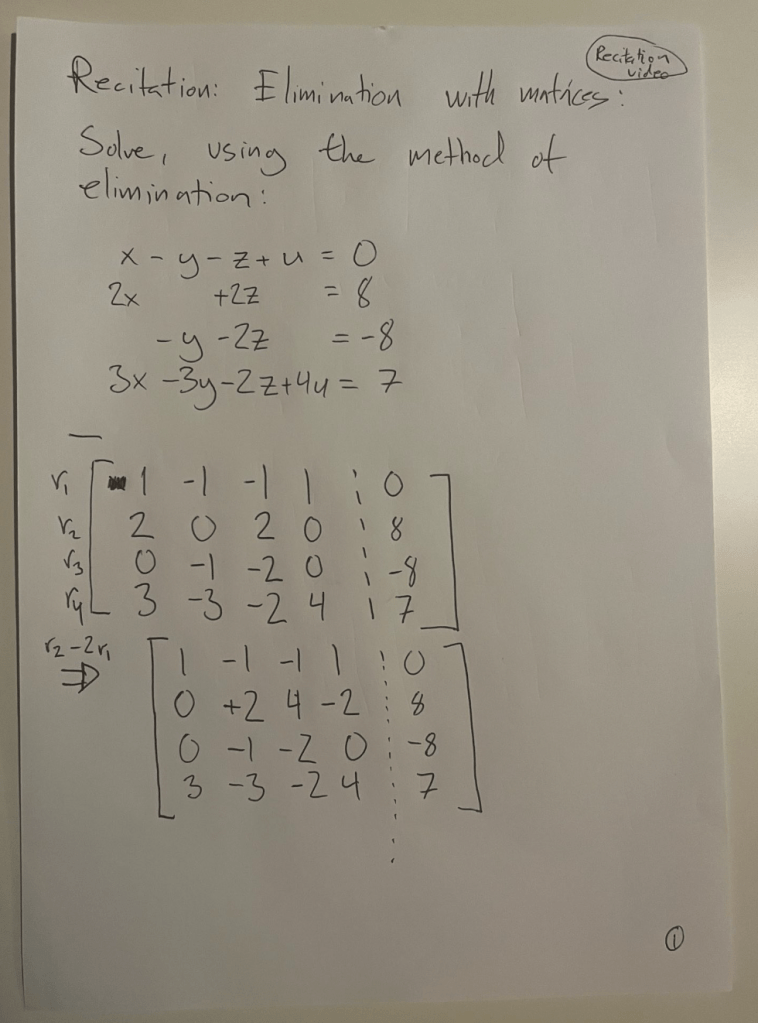 Recitation video
Recitation: Elimination with matrices:
Solve, using the method of
elimination:
x - y - z + u = 0
2x +2z = 8
-y -2z = -8
3x -3y -2z +4u = 7
—
r₁ 1 -1 -1 1 ¦ 0
r₂ 2 0 2 0 ¦ 8
r₃ 0 -1 -2 0 ¦ -8
r₄ 3 -3 -2 4 ¦ 7
r₂-2r₁
⇒
1 -1 -1 1 ¦ 0
0 +2 4 -2 ¦ 8
0 -1 -2 0 ¦ -8
3 -3 -2 4 ¦ 7
①